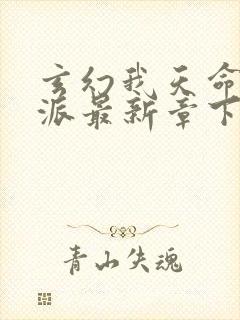 玄幻我天命
派最新章下
青山失魂